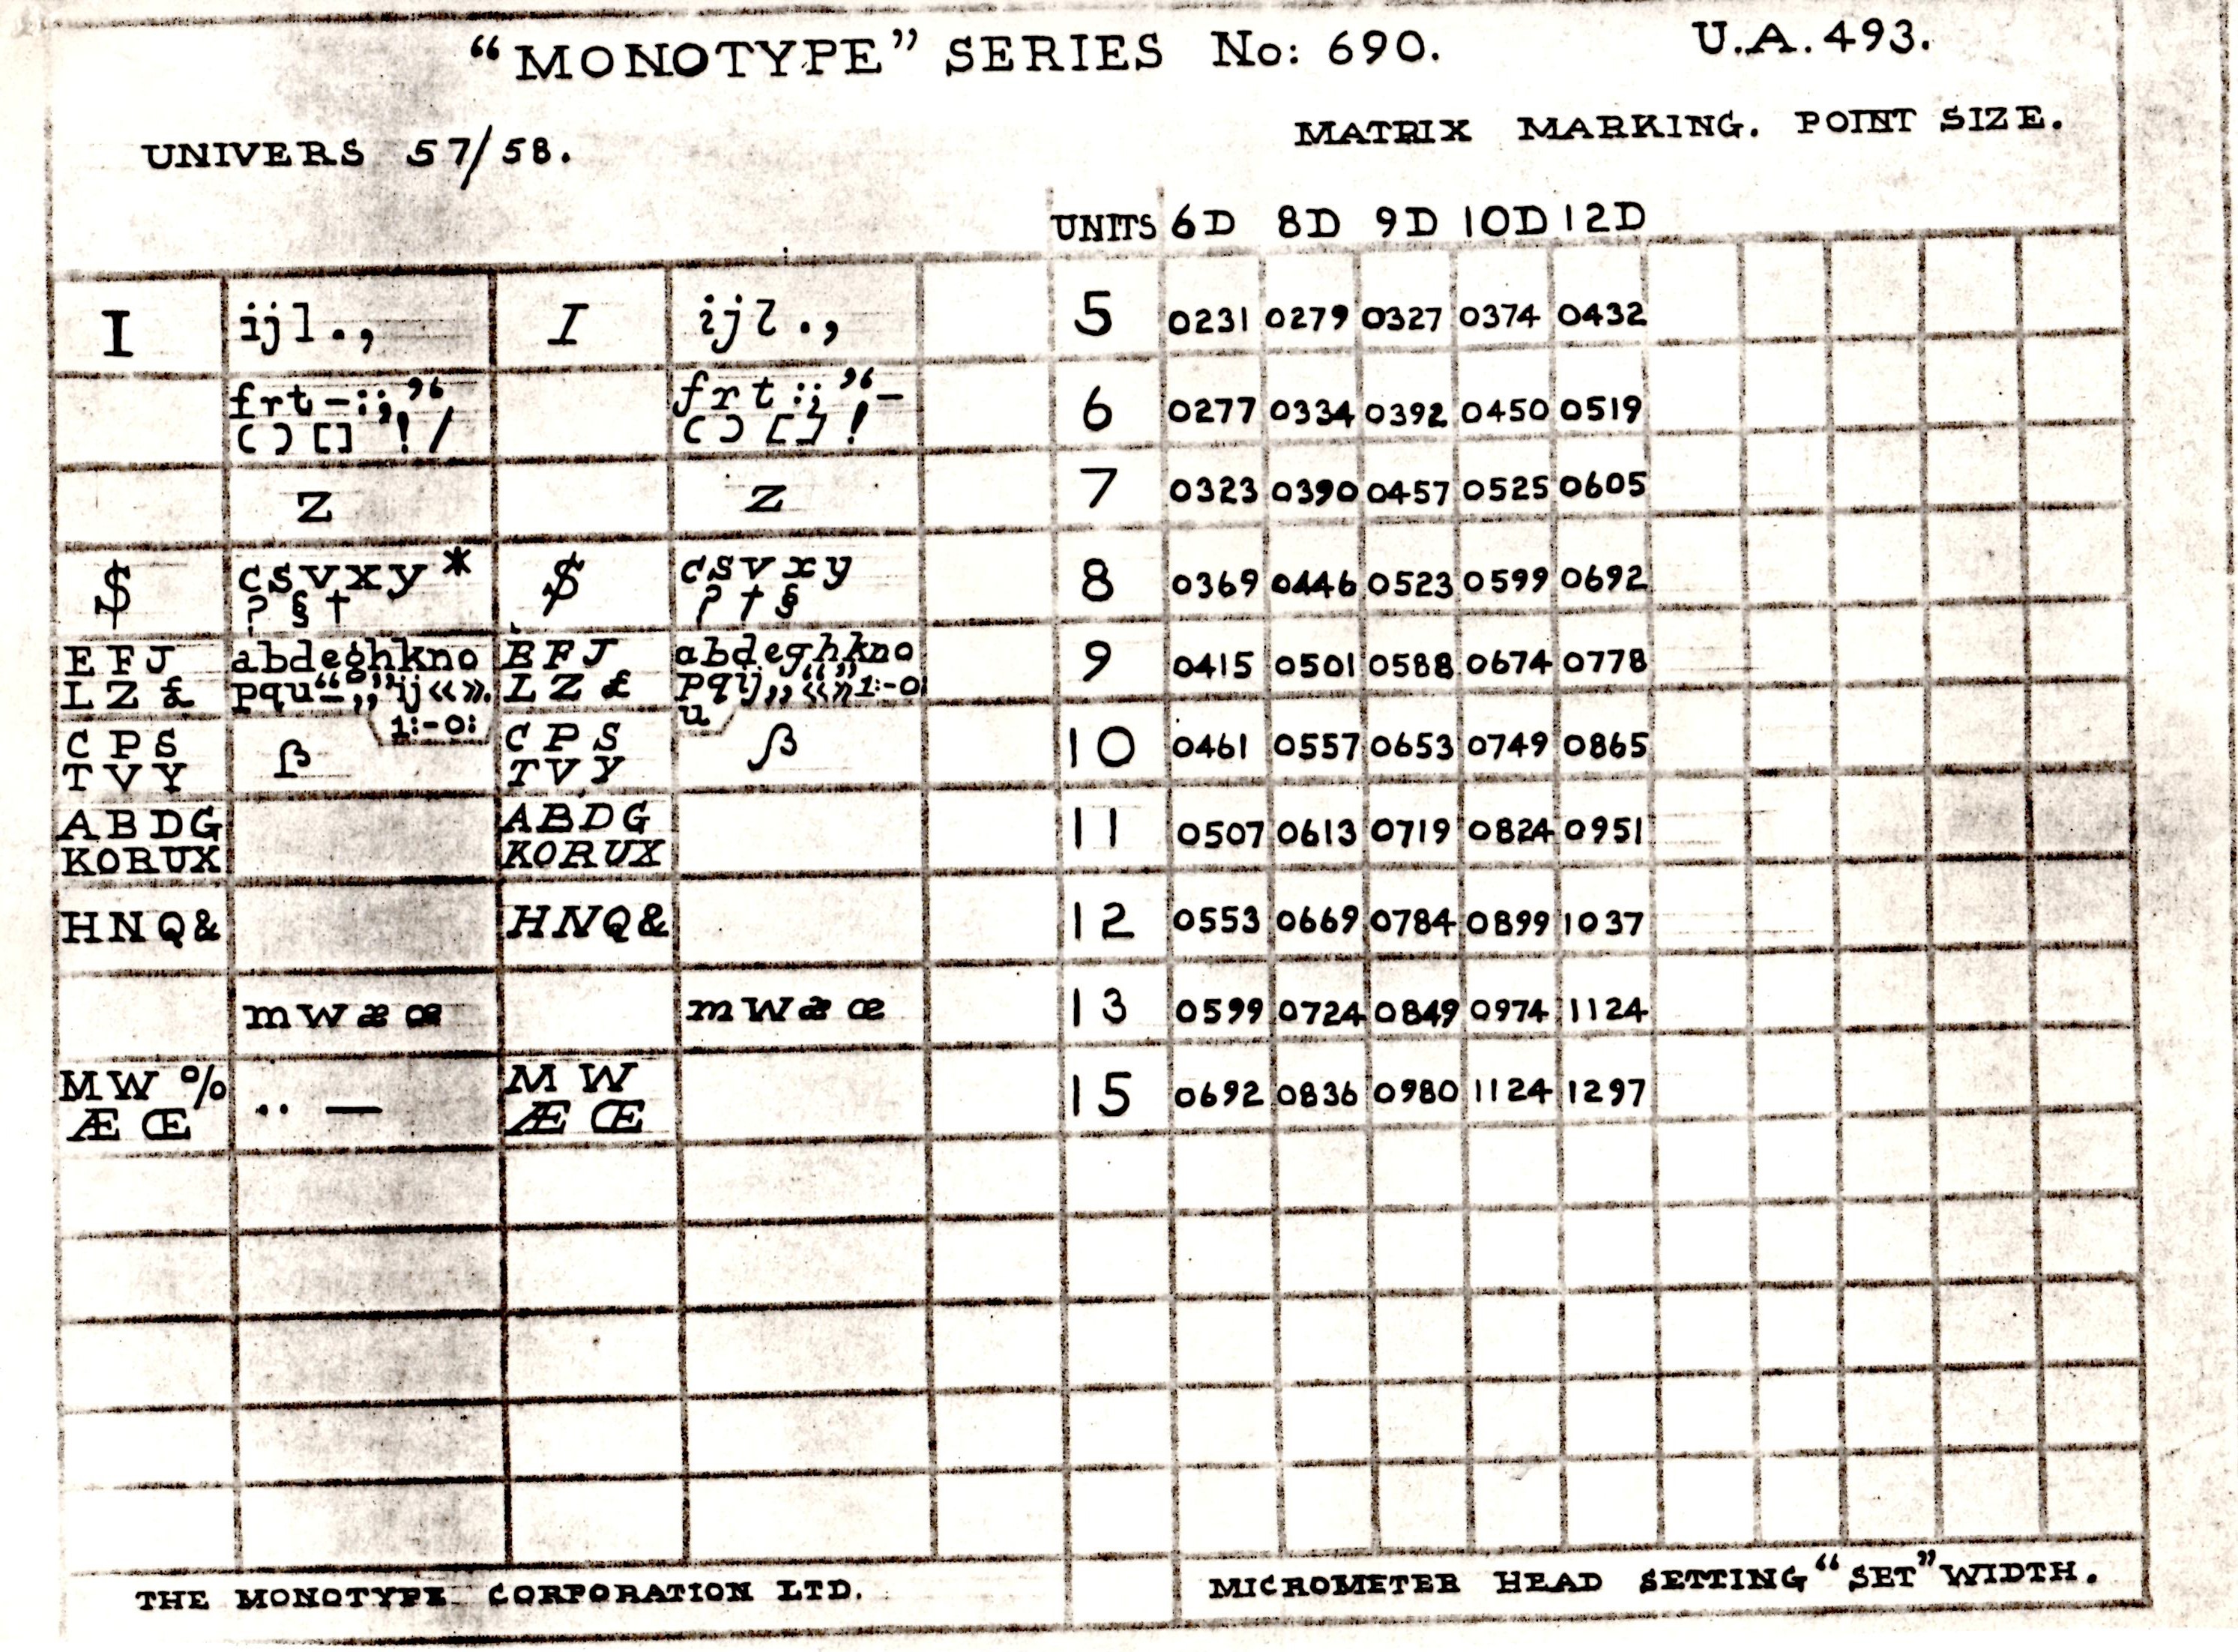 “MONOTYPE” SERIES No: 690. U.A. 493.
UNIVERS 57/58. MATRIX MARKING. POINT SIZE.
UNITS 6D 8D 9D 10D 12D
I ijl., I ijl., 5 0231 0279 0327 0374 0432
frt-:;’‘ frt:;’‘- 6 0277 0334 0392 0450 0519
() [] ! / () [] !
z z 7 0323 0390 0457 0525 0605
$ csvxy* $ csvxy 8 0369 0446 0523 0599 0692
? § † ? † §
EFJ abdeghkno EFJ abdeghkno 9 0415 0501 0588 0674 0778
LZ£ pqu “ „ ” ij «». LZ£ pqij „ “ ” «» 1:-0:
1:-0: u
CPS ß CPS ß 10 0461 0557 0653 0749 0865
TVY TVY
ABDG ABDG 11 0507 0613 0719 0824 0951
KORUX KORUX
HNQ& HNQ& 12 0553 0669 0784 0899 1037
mwæœ mwæœ 13 0599 0724 0849 0974 1124
MW% .. — MW 15 0692 0836 0980 1124 1297
ÆŒ ÆŒ
THE MONOTYPE CORPORATION LTD. MICROMETER HEAD SETTING “SET” WIDTH.